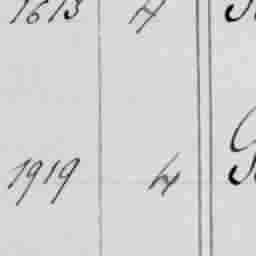 1613 4
1919 4